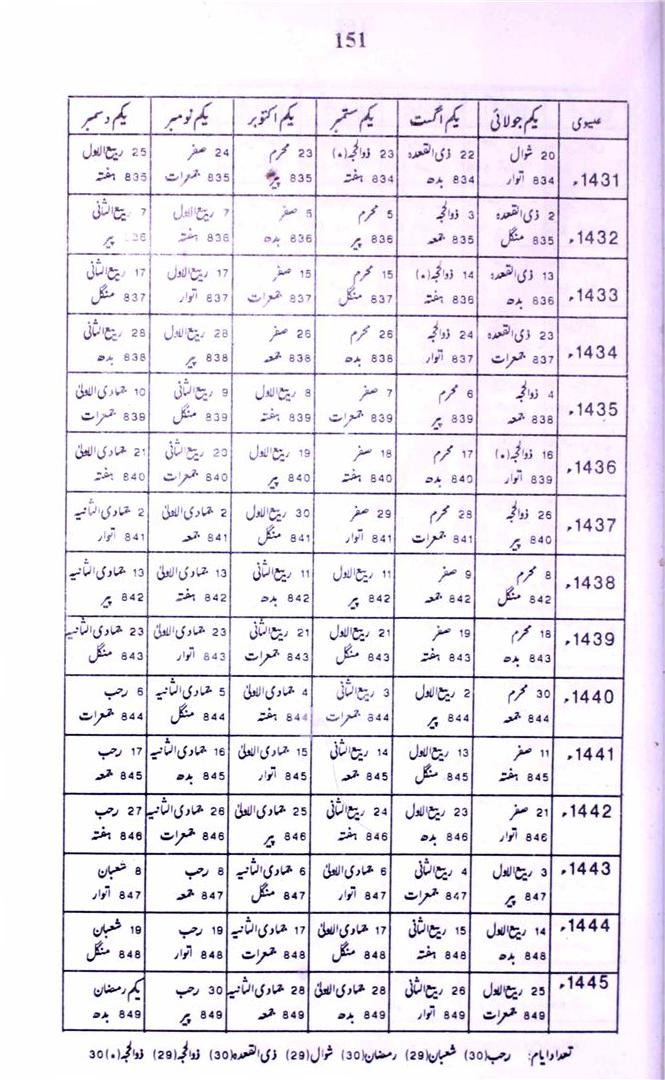 151
عیسوی یکم جولائی یکم اگست یکم ستمبر یکم اکتوبر یکم نومبر یکم دسمبر
1431ء 20 شوال 22 ذی القعدہ 23 ذوالحجہ(٭) 23 محرم 24 صفر 25 ربیع الاول
834 اتوار 834 بدھ 834 ہفتہ 835 پیر 835 جمعرات 835 ہفتہ
1432ء 2 ذی القعدہ 3 ذوالحجہ 5 محرم 5 صفر 7 ربیع الاول 7 ربیع الثانی
835 منگل 835 جمعہ 836 پیر 836 بدھ 836 ہفتہ 836 پیر
1433ء 13 ذی القعدہ 14 ذوالحجہ(٭) 15 محرم 15 صفر 17 ربیع الاول 17 ربیع الثانی
836 بدھ 836 ہفتہ 837 منگل 837 جمعرات 837 اتوار 837 منگل
1434ء 23 ذی القعدہ 24 ذوالحجہ 26 محرم 26 صفر 28 ربیع الاول 28 ربیع الثانی
837 جمعرات 837 اتوار 838 بدھ 838 جمعہ 838 پیر 838 بدھ
1435ء 4 ذوالحجہ 6 محرم 7 صفر 8 ربیع الاول 9 ربیع الثانی 10 جمادی الاولیٰ
838 جمعہ 839 پیر 839 جمعرات 839 ہفتہ 839 منگل 839 جمعرات
1436ء 16 ذوالحجہ(٭) 17 محرم 18 صفر 19 ربیع الاول 20 ربیع الثانی 21 جمادی الاولیٰ
839 اتوار 840 بدھ 840 ہفتہ 840 پیر 840 جمعرات 840 ہفتہ
1437ء 26 ذوالحجہ 28 محرم 29 صفر 30 ربیع الاول 2 جمادی الاولیٰ 2 جمادی الثانیہ
840 پیر 841 جمعرات 841 اتوار 841 منگل 841 جمعہ 841 اتوار
1438ء 8 محرم 9 صفر 11 ربیع الاول 11 ربیع الثانی 13 جمادی الاولیٰ 13 جمادی الثانیہ
842 منگل 842 جمعہ 842 پیر 842 بدھ 842 ہفتہ 842 پیر
1439ء 18 محرم 19 صفر 21 ربیع الاول 21 ربیع الثانی 23 جمادی الاولیٰ 23 جمادی الثانیہ
843 بدھ 843 ہفتہ 843 منگل 843 جمعرات 843 اتوار 843 منگل
1440ء 30 محرم 2 ربیع الاول 3 ربیع الثانی 4 جمادی الاولیٰ 5 جمادی الثانیہ 6 رجب
844 جمعہ 844 پیر 844 جمعرات 844 ہفتہ 844 منگل 844 جمعرات
1441ء 11 صفر 13 ربیع الاول 14 ربیع الثانی 15 جمادی الاولیٰ 16 جمادی الثانیہ 17 رجب
845 ہفتہ 845 منگل 845 جمعہ 845 اتوار 845 بدھ 845 جمعہ
1442ء 21 صفر 23 ربیع الاول 24 ربیع الثانی 25 جمادی الاولیٰ 26 جمادی الثانیہ 27 رجب
846 اتوار 846 بدھ 846 ہفتہ 846 پیر 846 جمعرات 846 ہفتہ
1443ء 3 ربیع الاول 4 ربیع الثانی 6 جمادی الاولیٰ 6 جمادی الثانیہ 8 رجب 8 شعبان
847 پیر 847 جمعرات 847 اتوار 847 منگل 847 جمعہ 847 اتوار
1444ء 14 ربیع الاول 15 ربیع الثانی 17 جمادی الاولیٰ 17 جمادی الثانیہ 19 رجب 19 شعبان
848 بدھ 848 ہفتہ 848 منگل 848 جمعرات 848 اتوار 848 منگل
1445ء 25 ربیع الاول 26 ربیع الثانی 28 جمادی الاولیٰ 28 جمادی الثانیہ 30 رجب یکم رمضان
849 جمعرات 849 اتوار 849 بدھ 849 جمعہ 849 پیر 849 بدھ
تعداد ایام: رجب(30) شعبان(29) رمضان(30) شوال(29) ذی القعدہ(30) ذوالحجہ(29) ذوالحجہ(٭)30